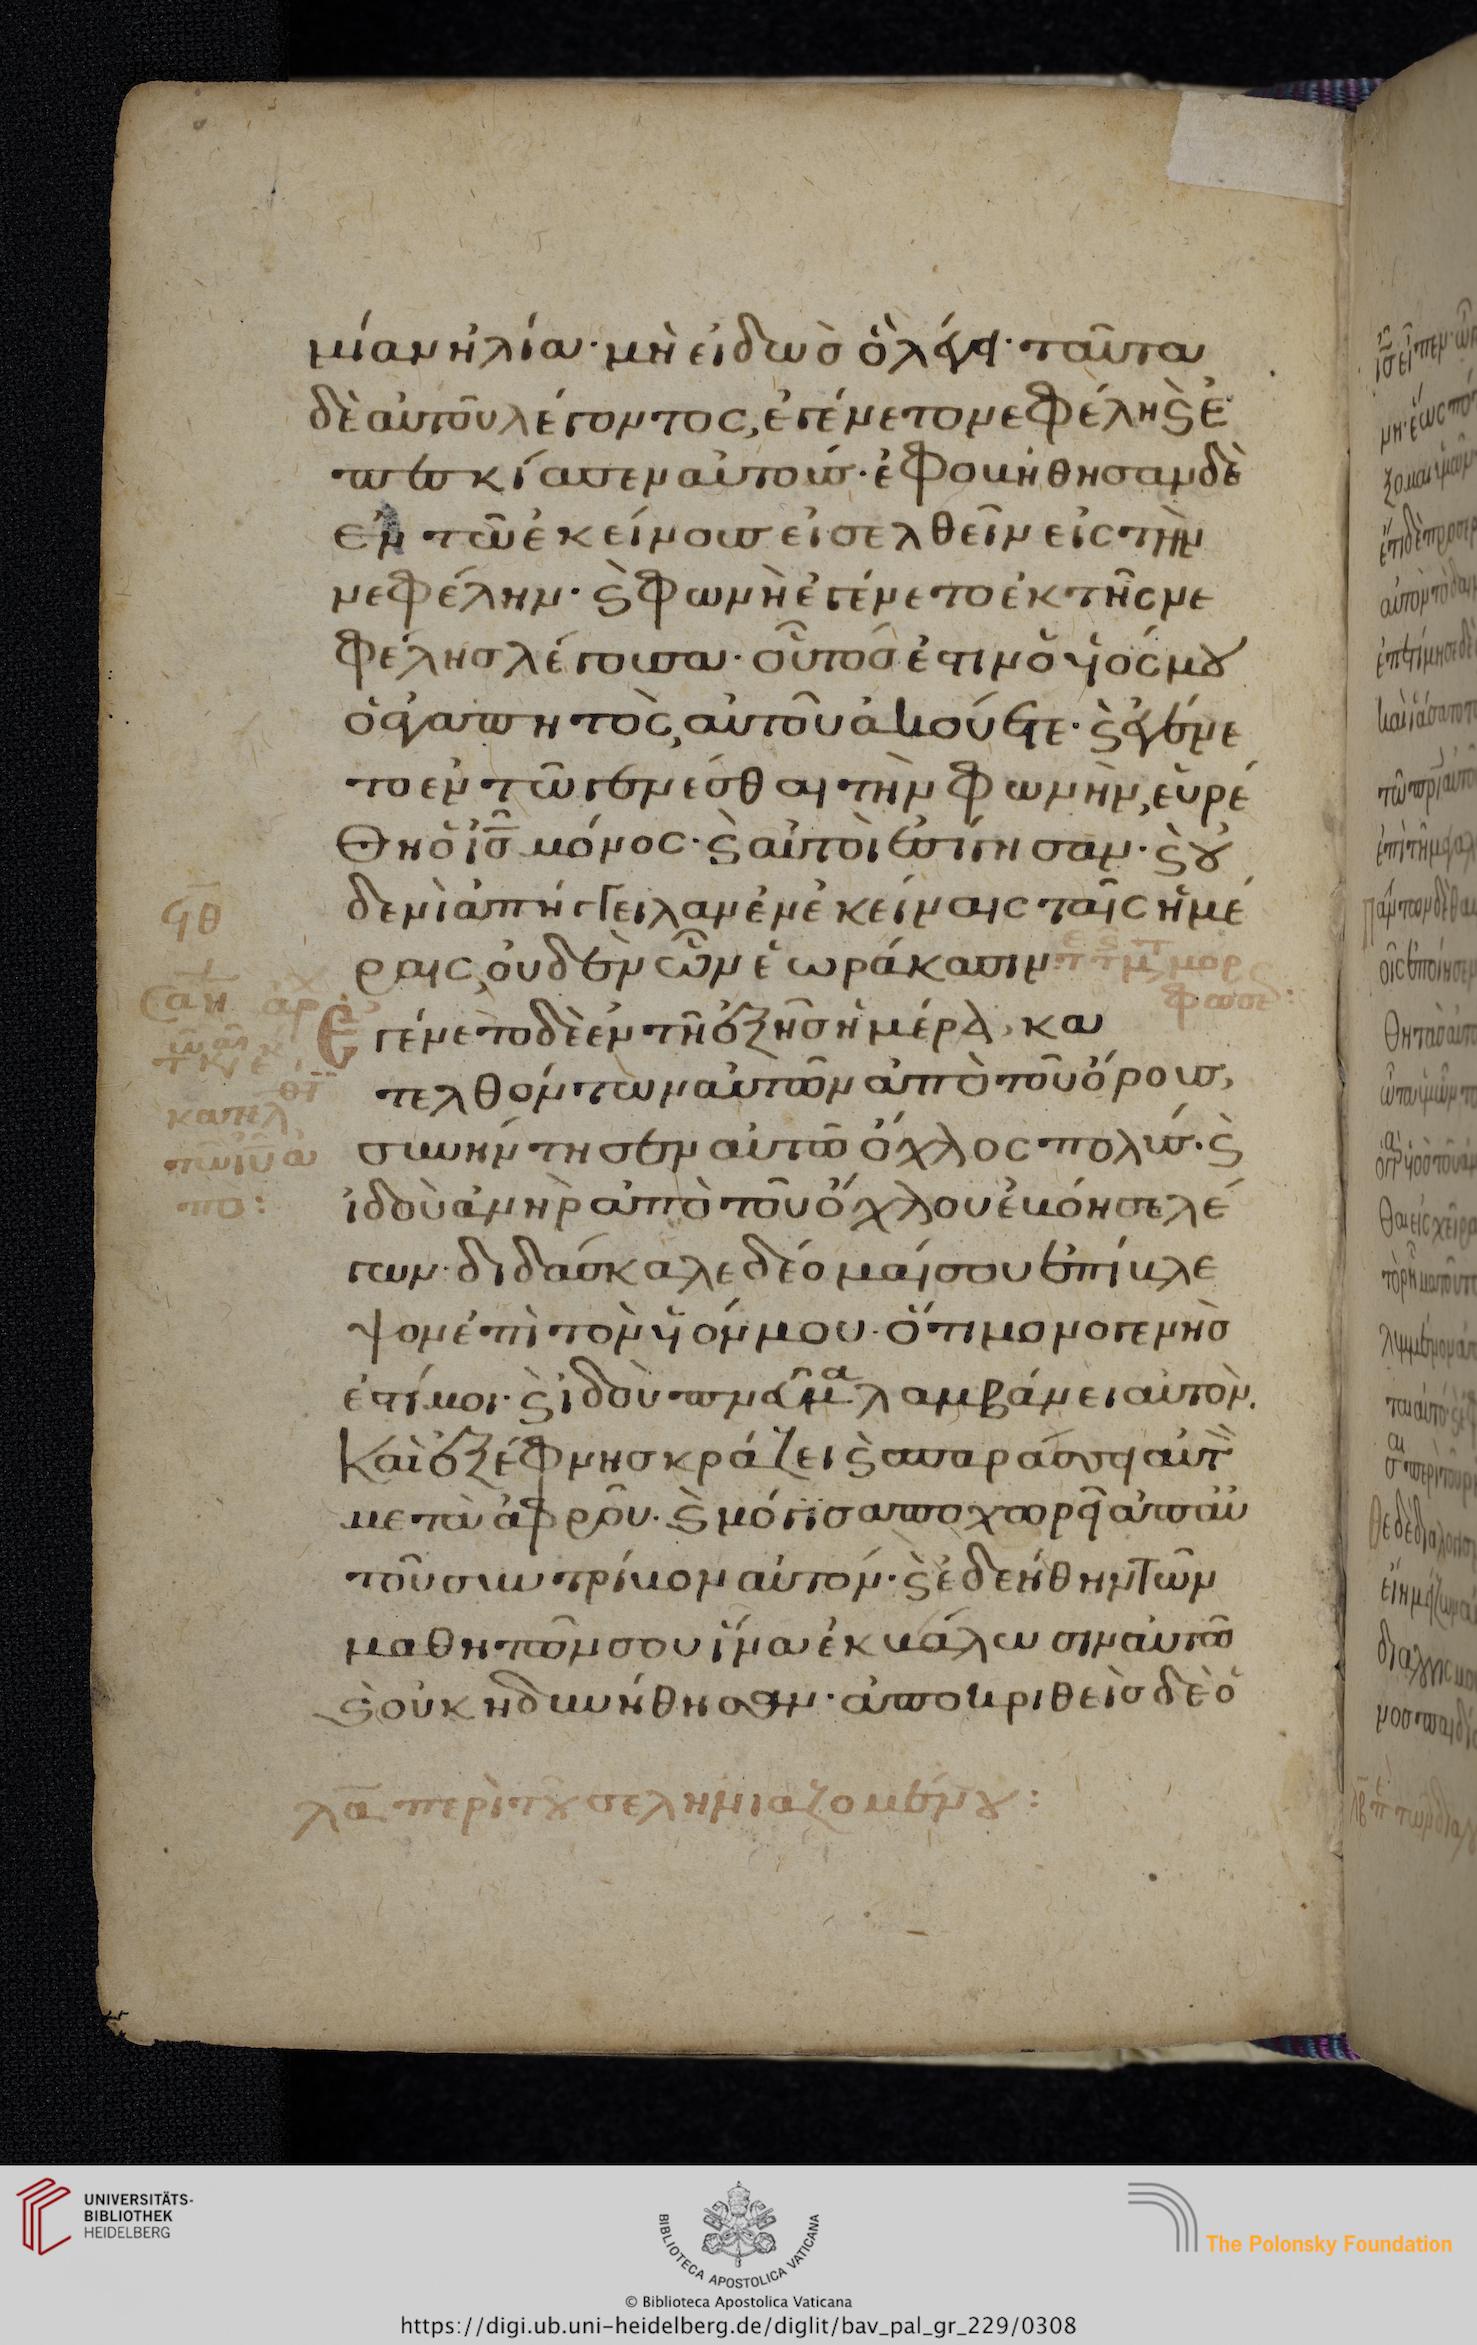 μίαν ἠλία· μὴ εἰδὼσ ὃ λέγει· ταῦτα
δὲ αὐτοῦ λέγοντος, ἐγένετο νεφέλη ϗ ἐ
πεσκίασεν αὐτούς· ἐφοβήθησαν δὲ
ἐν τῶ ἐκείνους εἰσελθεῖν εἰς τὴν
νεφέλην· ϗ φωνὴ ἐγένετο ἐκ τῆς νε
φέλησ λέγουσα· οὗτόσ ἐστιν ὁ υἱός μου
ὁ ἀγαπητὸς, αὐτοῦ ἀκούετε· ϗ ἐγένε
το ἐν τῶ γενέσθαι τὴν φωνὴν, εὑρέ
θη ὁ ις̅ μόνος· ϗ αὐτοὶ ἐσίγησαν· ϗ οὐ
δενὶ ἀπήγγειλαν ἐν ἐκείναις ταῖς ἡμέ
ραις, οὐδὲν ὧν ἑωράκασιν·
ϟθ
Ἐγένετο δὲ ἐν τῆ ἑξῆσ ἡμέρα, κα
τελθόντων αὐτῶν ἀπὸ τοῦ ὄρους,
συνήντησεν αὐτῶ ὄχλος πολύς· ϗ
ἰδοὺ ἀνὴρ ἀπὸ τοῦ ὄχλου ἐβόησε λέ
γων· διδάσκαλε δέομαί σου ἐπίβλε
ψον ἐπὶ τὸν υἱόν μου· ὅτι μονογενήσ
ἐστί μοι· ϗ ἰδοὺ πνα̅ λαμβάνει αὐτὸν,
Καὶ ἐξέφνησ κράζει ϗ σπαράσσει αὐτὸν
μετὰ ἀφροῦ· ϗ μόγισ ἀποχωρεῖ ἀπ' αὐ
τοῦ συντρίβον αὐτόν· ϗ ἐδεήθην τῶν
μαθητῶν σου ἵνα ἐκβάλωσιν αὐτὸ
ϗ οὐκ ἠδυνήθησαν· ἀποκριθεὶσ δὲ ὁ
λα̅ περὶ τοῦ σεληνιαζομένου:
UNIVERSITÄTS-
BIBLIOTHEK
HEIDELBERG
BIBLIOTECA APOSTOLICA VATICANA
The Polonsky Foundation
© Biblioteca Apostolica Vaticana
https://digi.ub.uni-heidelberg.de/diglit/bav_pal_gr_229/0308